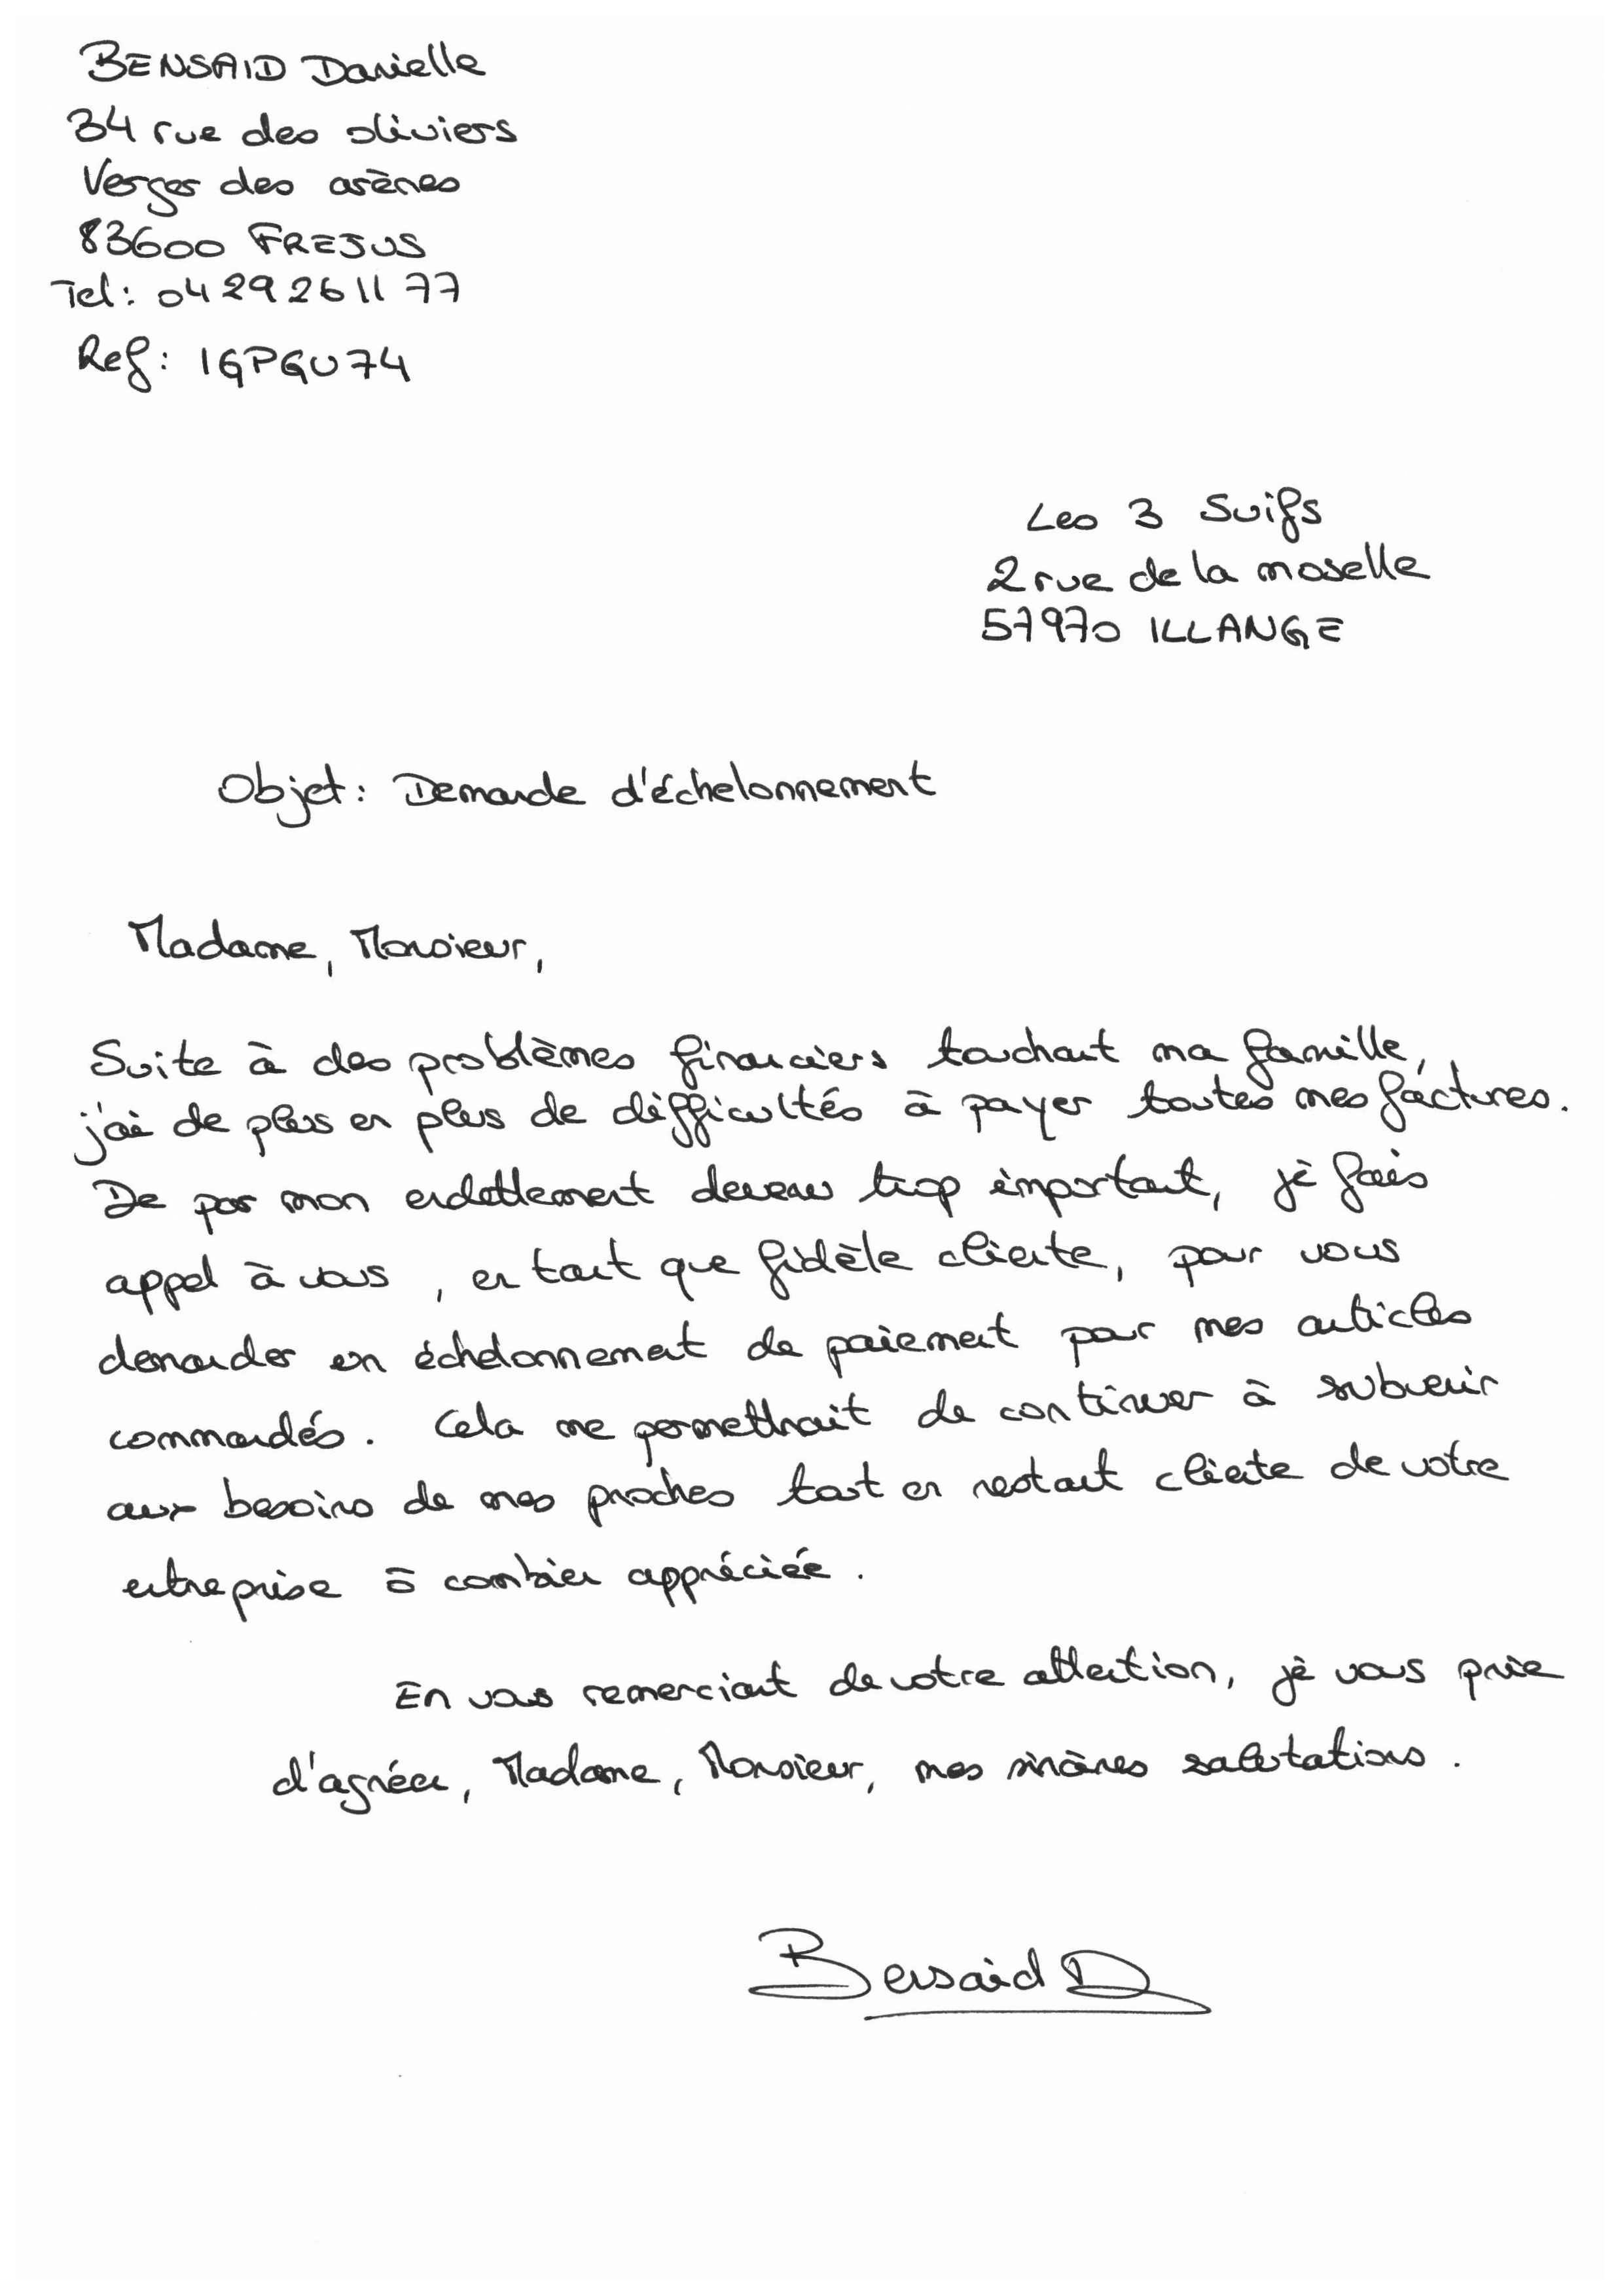 BENSAID Danielle
34 rue des oliviers
Verger des arènes
83600 FREJUS
Tel: 04 29 26 11 77
Ref: IGPGU74
Les 3 Suifs
2 rue de la moselle
57970 ILLANGE
Objet: Demande d'échelonnement
Madame, Monsieur,
Suite à des problèmes financiers touchant ma famille,
j'ai de plus en plus de difficultés à payer toutes mes factures.
De par mon endettement devenu trop important, je fais
appel à vous, en tant que fidèle cliente, pour vous
demander un échelonnement de paiement pour mes articles
commandés. Cela me permettrait de continuer à subvenir
aux besoins de mes proches tout en restant cliente de votre
entreprise ô combien appréciée.
En vous remerciant de votre attention, je vous prie
d'agréer, Madame, Monsieur, mes sincères salutations.
Bensaid D